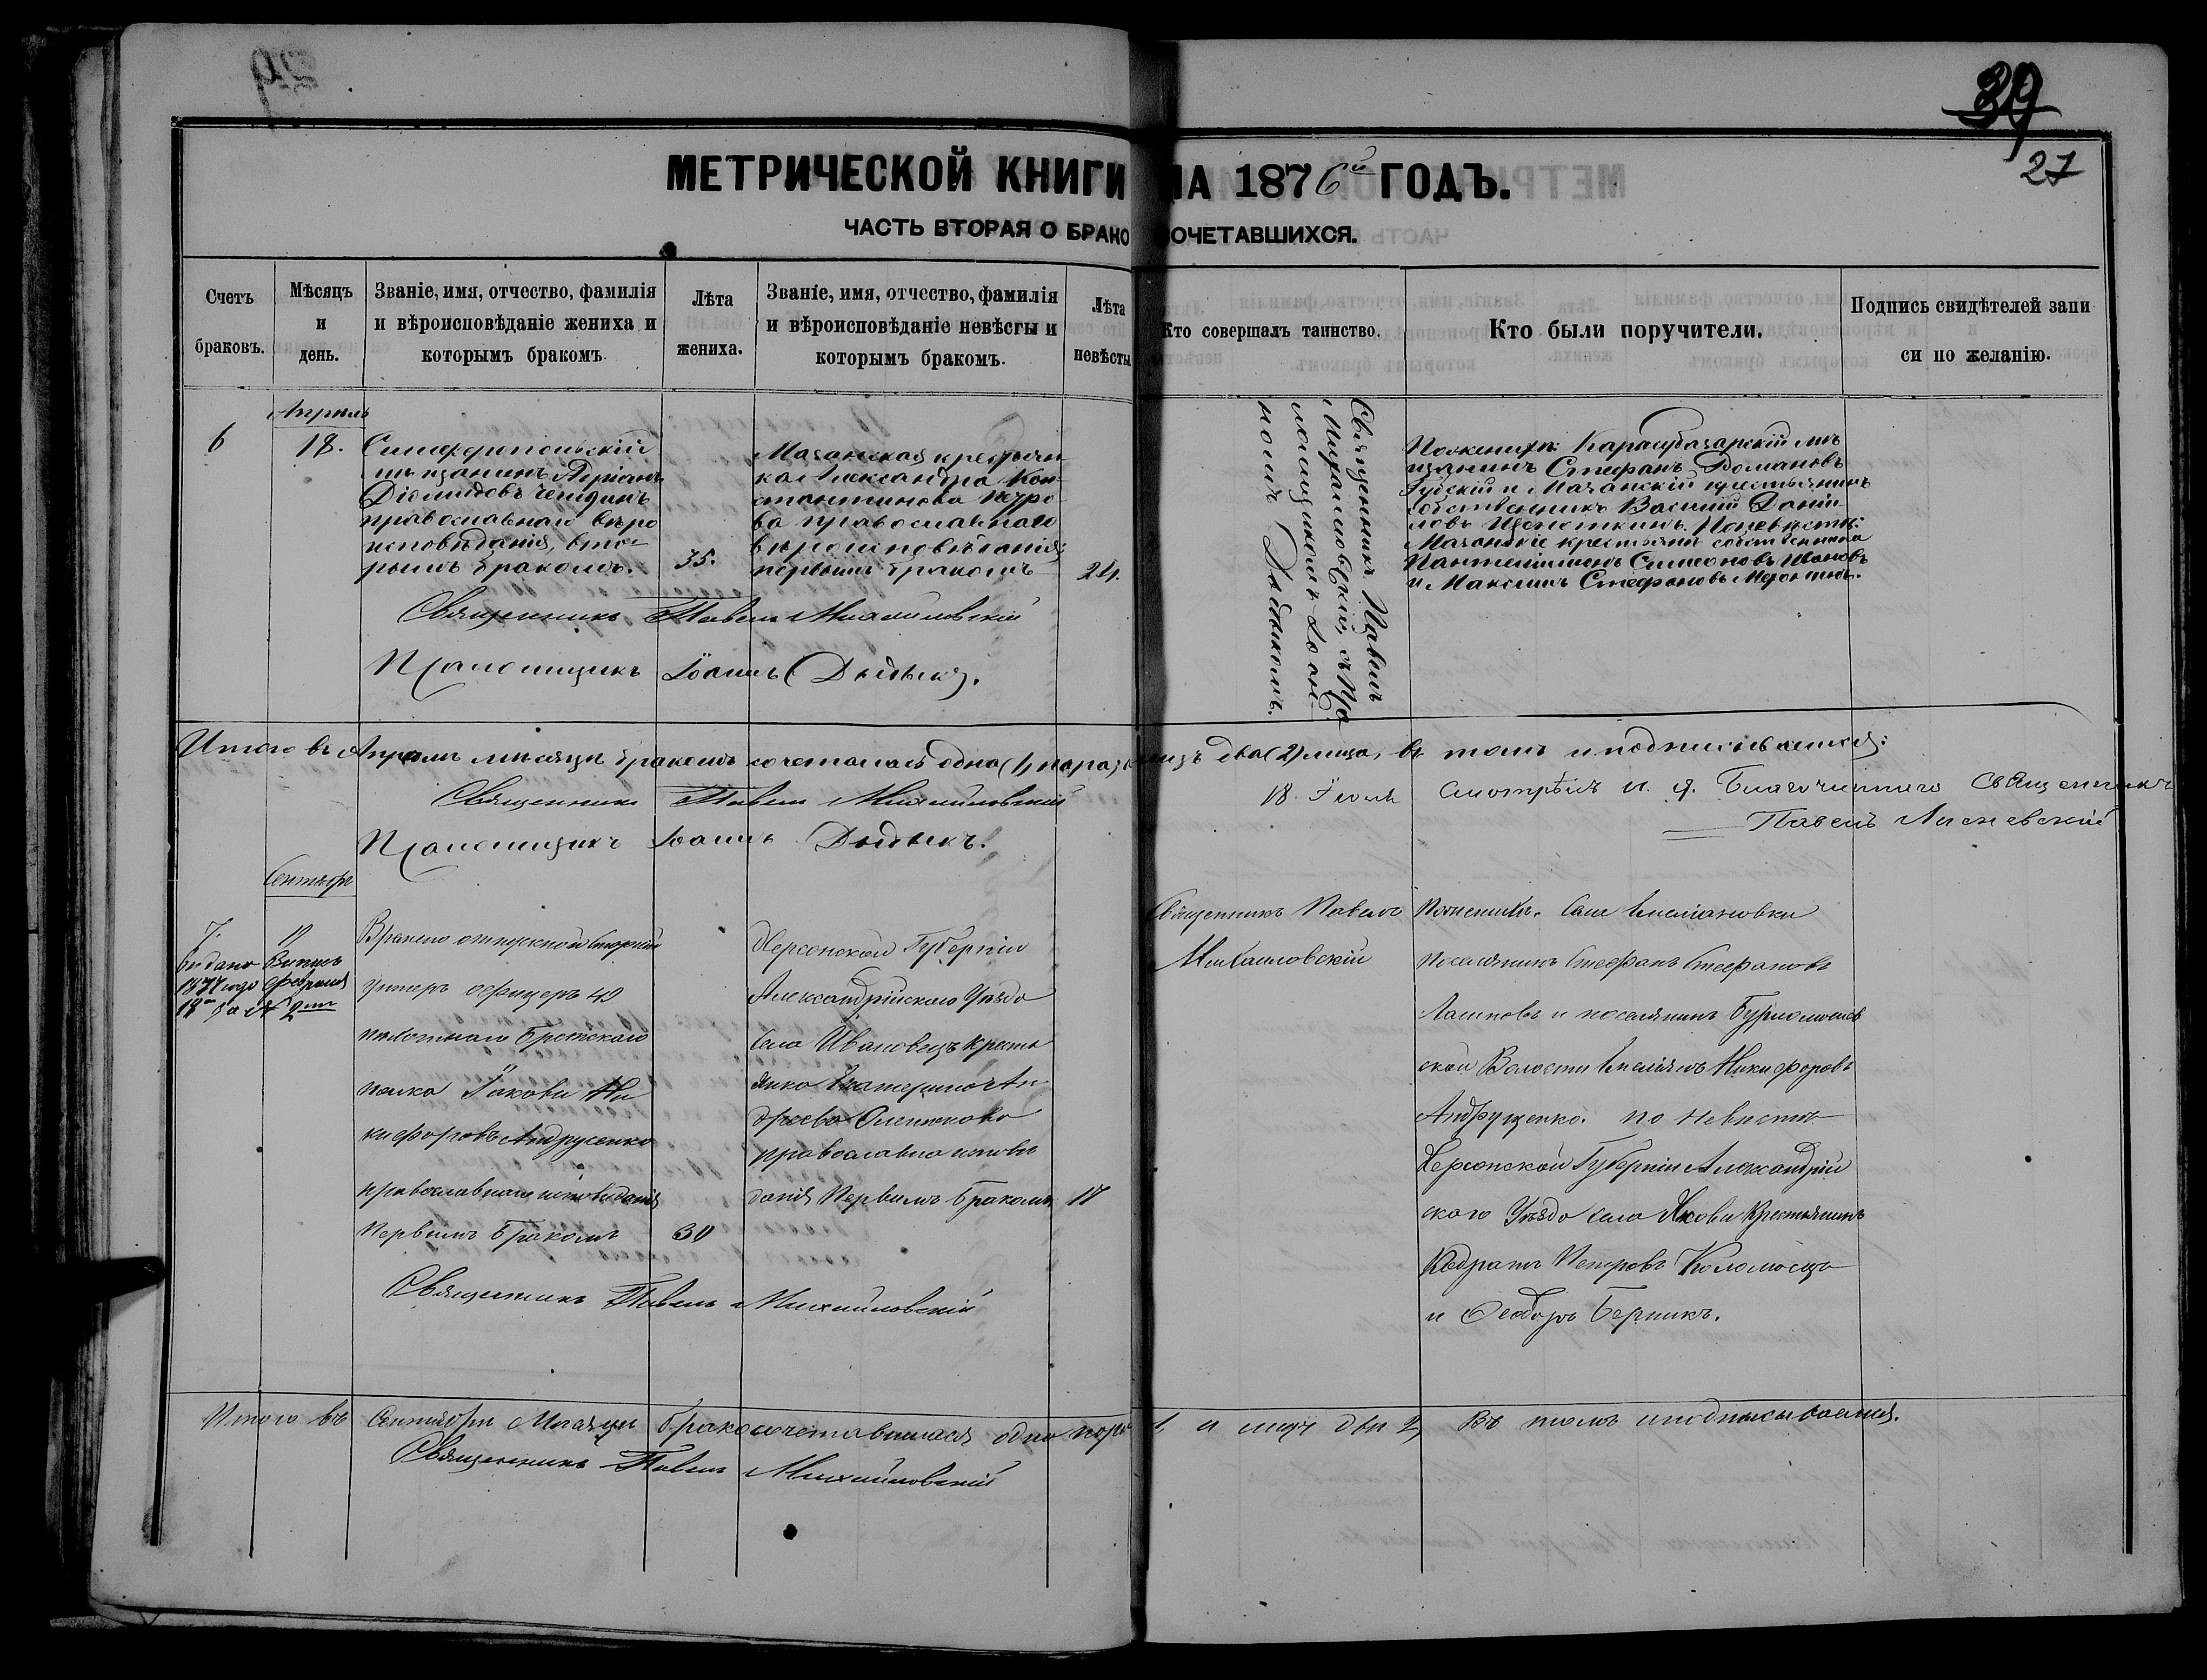 39
27
МЕТРИЧЕСКОЙ КНИГИ НА 1876й ГОДЪ.
ЧАСТЬ ВТОРАЯ О БРАКОСОЧЕТАВШИХСЯ.
Счетъ браковъ.
Мѣсяцъ и день.
Званіе, имя, отчество, фамилія
и вѣроисповѣданіе жениха и
которымъ бракомъ.
Лѣта жениха.
Званіе, имя, отчество, фамилія
и вѣроисповѣданіе невѣсты и
которымъ бракомъ.
Лѣта невѣсты.
Кто совершалъ таинство.
Кто были поручители.
Подпись свидѣтелей запи
си по желанію.
Апрѣль
6
18.
Симферопольскій
мѣщанинъ Адріанъ
Діомидовъ
православнаго вѣро
исповѣданія, вто
рымъ бракомъ.
35.
Мазанская крестьян
ка Александра Кон
стантинова Петро
ва православнаго
вѣроисповѣданія;
первымъ бракомъ
24.
Священникъ Павелъ
Михайловскій, съ Пса
ломщикомъ Іоан
номъ Дыдыкомъ.
По женихѣ: Карасубазарскій мѣ
щанинъ Стефанъ Романовъ
Губскій и Мазанскій крестьянинъ
собственникъ Василій Даніи
ловъ Щепоткинъ. По невѣстѣ:
Мазанскіе крестьяне собственники
Пантелимонъ Симеоновъ Ивановъ
и Максимъ Стефановъ
Священникъ Павелъ Михайловскій
Псаломщикъ Іоаннъ Дыдыкъ.
Итого въ Апрѣлѣ мѣсяцѣ бракомъ сочеталась одна (1) пара, лицъ два (2) лица, въ томъ и подписываемся:
Священникъ Павелъ Михайловскій
Псаломщикъ Іоаннъ Дыдыкъ.
18. Іюля смотрѣлъ и. д. Благочиннаго Священникъ
Павелъ
Сентябрь
7.
19
Видано Выпись
1877 года Февраля
18го за № 2мъ
Врзмено отпускной Старшій
унтеръ офицеръ 49
пѣхотнаго Брестскаго
полка Іаковъ Ни
кифоровъ Андрусенко
православнаго исповѣданія
Первымъ Бракомъ
30
Херсонской Губерніи
Александрійскаго Уѣзда
Села Ивановецъ кресть
янка Екатерина Ан
дреева
православна исповѣ
данія Первымъ Бракомъ
18
Священникъ Павелъ
Михайловскій
По женихѣ. Села
поселянинъ Стефанъ Стефановъ
и поселянинъ
ской Волости Никифоровъ
Андрущенко. по Невѣстѣ
Херсонской Губерніи Александрій
скаго Уѣзда села Крестьянинъ
Кодратъ Петровъ Коломоецъ
и Ѳеодоръ Берникъ.
Священникъ Павелъ Михайловскій
Итого въ Сентябрѣ Мѣсяцѣ бракосочетавшихся одна пара 1, и лицъ два 2, Въ томъ и подписываемся.
Священникъ Павелъ Михайловскій